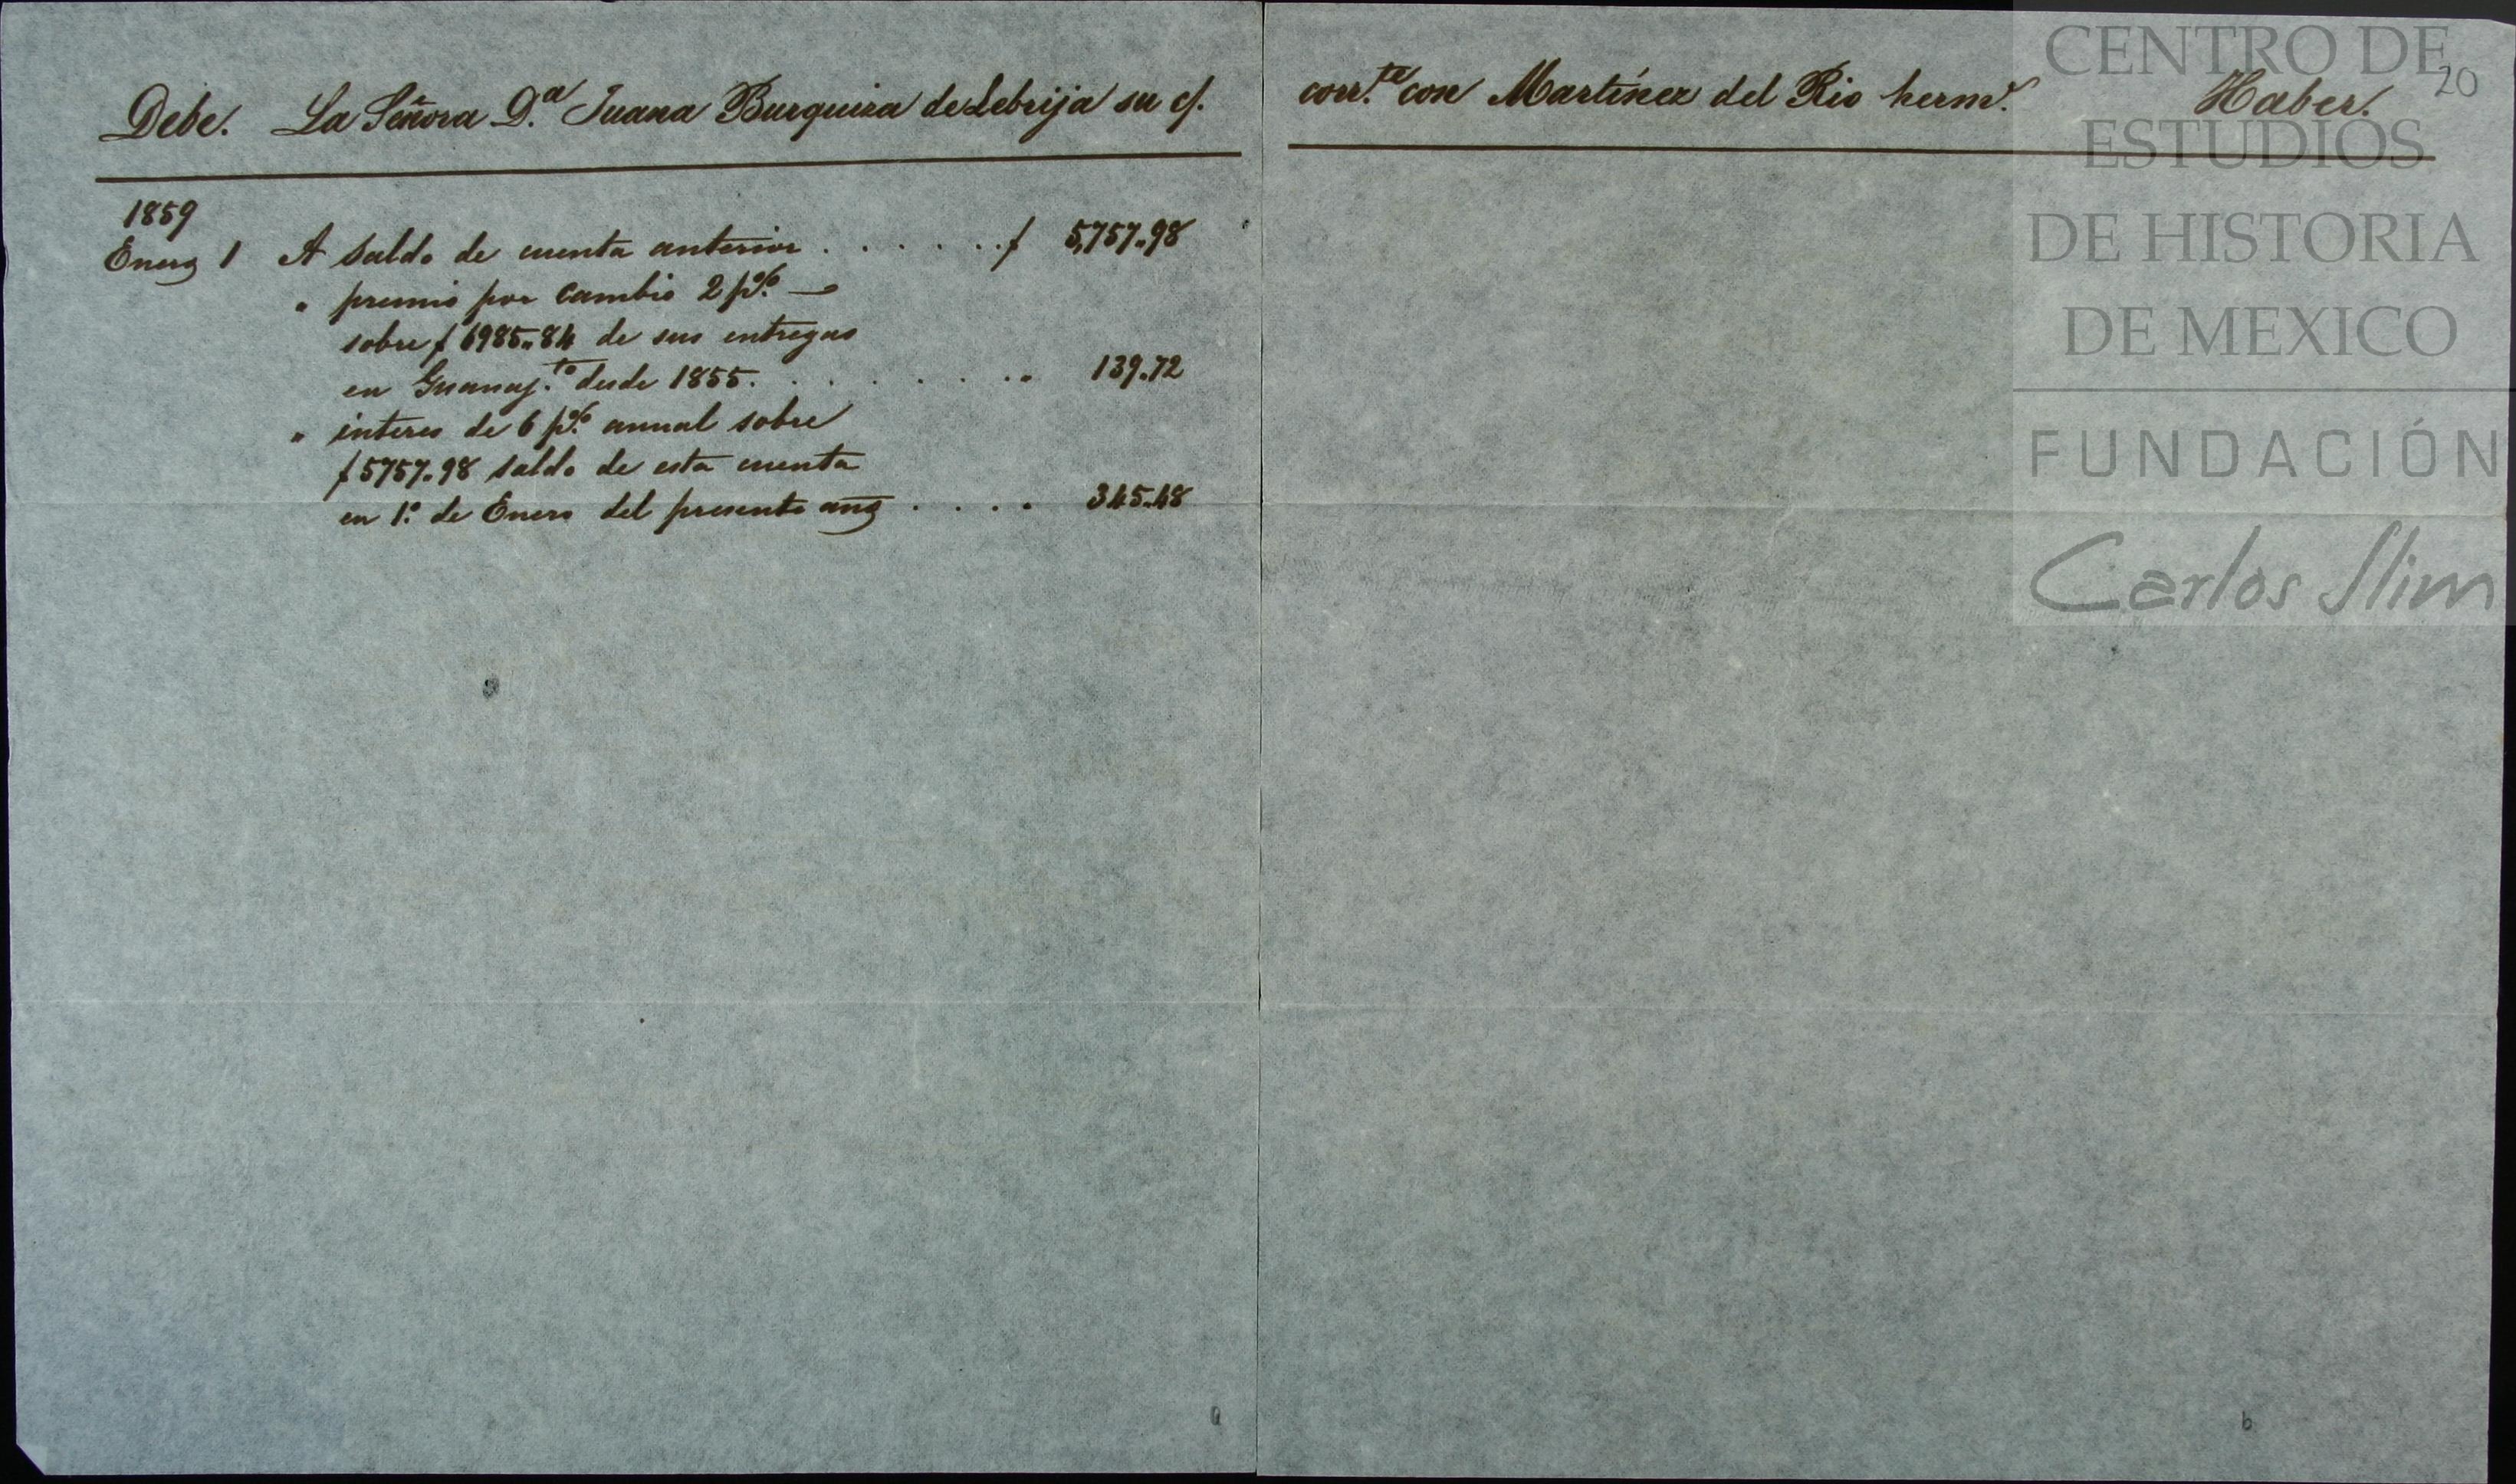 Debe. La Señora D.ª Juana Burquiza de Lebrija su c/.
1859
Enero 1 A saldo de cuenta anterior . . . . . . . $ 5,757.98
" premio por cambio 2 p% —
sobre $ 6985.84 de sus entregas
en Guanaj.to desde 1855. . . . . . . . " 139.72
" interes de 6 p% annual sobre
$ 5757.98 saldo de esta cuenta
en 1.º de Enero del presente año . . . . 345.48
a
corr.te con Martínez del Rio herm.s Haber.
20
b
CENTRO DE
ESTUDIOS
DE HISTORIA
DE MEXICO
FUNDACIÓN
Carlos Slim